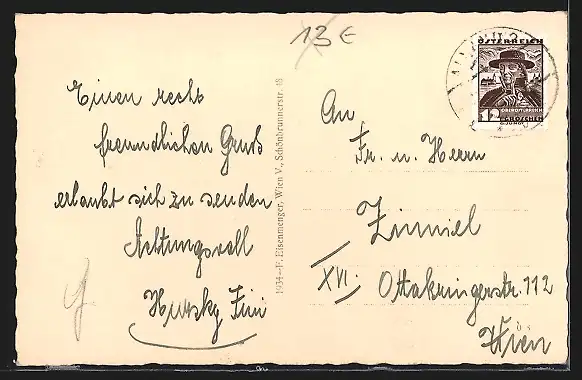 13 €
Einen recht
freundlichen Gruß
erlaubt sich zu senden
Achtungsvoll
Hursky Fini
1934-F. Eisenmenger, Wien V., Schönbrunnerstr. 48
ÖSTERREICH
OBERÖSTERREICH
12 GROSCHEN
An
Fr. u. Herrn
Zinniel
XVI. Ottakringerstr. 112
Wien